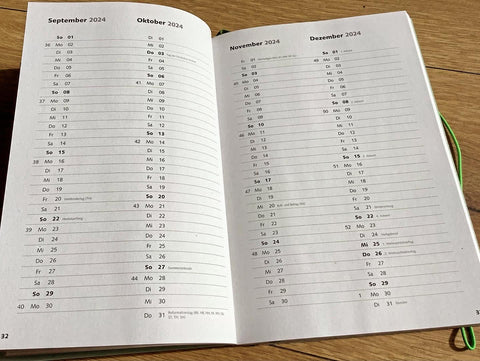 September 2024
So 01
36 Mo 02
Di 03
Mi 04
Do 05
Fr 06
Sa 07
So 08
37 Mo 09
Di 10
Mi 11
Do 12
Fr 13
Sa 14
So 15
38 Mo 16
Di 17
Mi 18
Do 19
Fr 20 Weltkindertag (TH)
Sa 21
So 22 Herbstanfang
39 Mo 23
Di 24
Mi 25
Do 26
Fr 27
Sa 28
So 29
40 Mo 30
32
Oktober 2024
Di 01
Mi 02
Do 03 Tag der Deutschen Einheit
Fr 04
Sa 05
So 06
41 Mo 07
Di 08
Mi 09
Do 10
Fr 11
Sa 12
So 13
42 Mo 14
Di 15
Mi 16
Do 17
Fr 18
Sa 19
So 20
43 Mo 21
Di 22
Mi 23
Do 24
Fr 25
Sa 26
So 27 Sommerzeitende
44 Mo 28
Di 29
Mi 30
Do 31 Reformationstag
November 2024
Fr 01 Allerheiligen
Sa 02
So 03
45 Mo 04
Di 05
Mi 06
Do 07
Fr 08
Sa 09
So 10
46 Mo 11
Di 12
Mi 13
Do 14
Fr 15
Sa 16
So 17
47 Mo 18
Di 19
Mi 20 Buß- und Bettag (SN)
Do 21
Fr 22
Sa 23
So 24
48 Mo 25
Di 26
Mi 27
Do 28
Fr 29
Sa 30
Dezember 2024
So 01 1. Advent
49 Mo 02
Di 03
Mi 04
Do 05
Fr 06
Sa 07
So 08 2. Advent
50 Mo 09
Di 10
Mi 11
Do 12
Fr 13
Sa 14
So 15 3. Advent
51 Mo 16
Di 17
Mi 18
Do 19
Fr 20
Sa 21 Winteranfang
So 22 4. Advent
52 Mo 23
Di 24 Heiligabend
Mi 25 1. Weihnachtstag
Do 26 2. Weihnachtstag
Fr 27
Sa 28
So 29
1 Mo 30
Di 31 Silvester